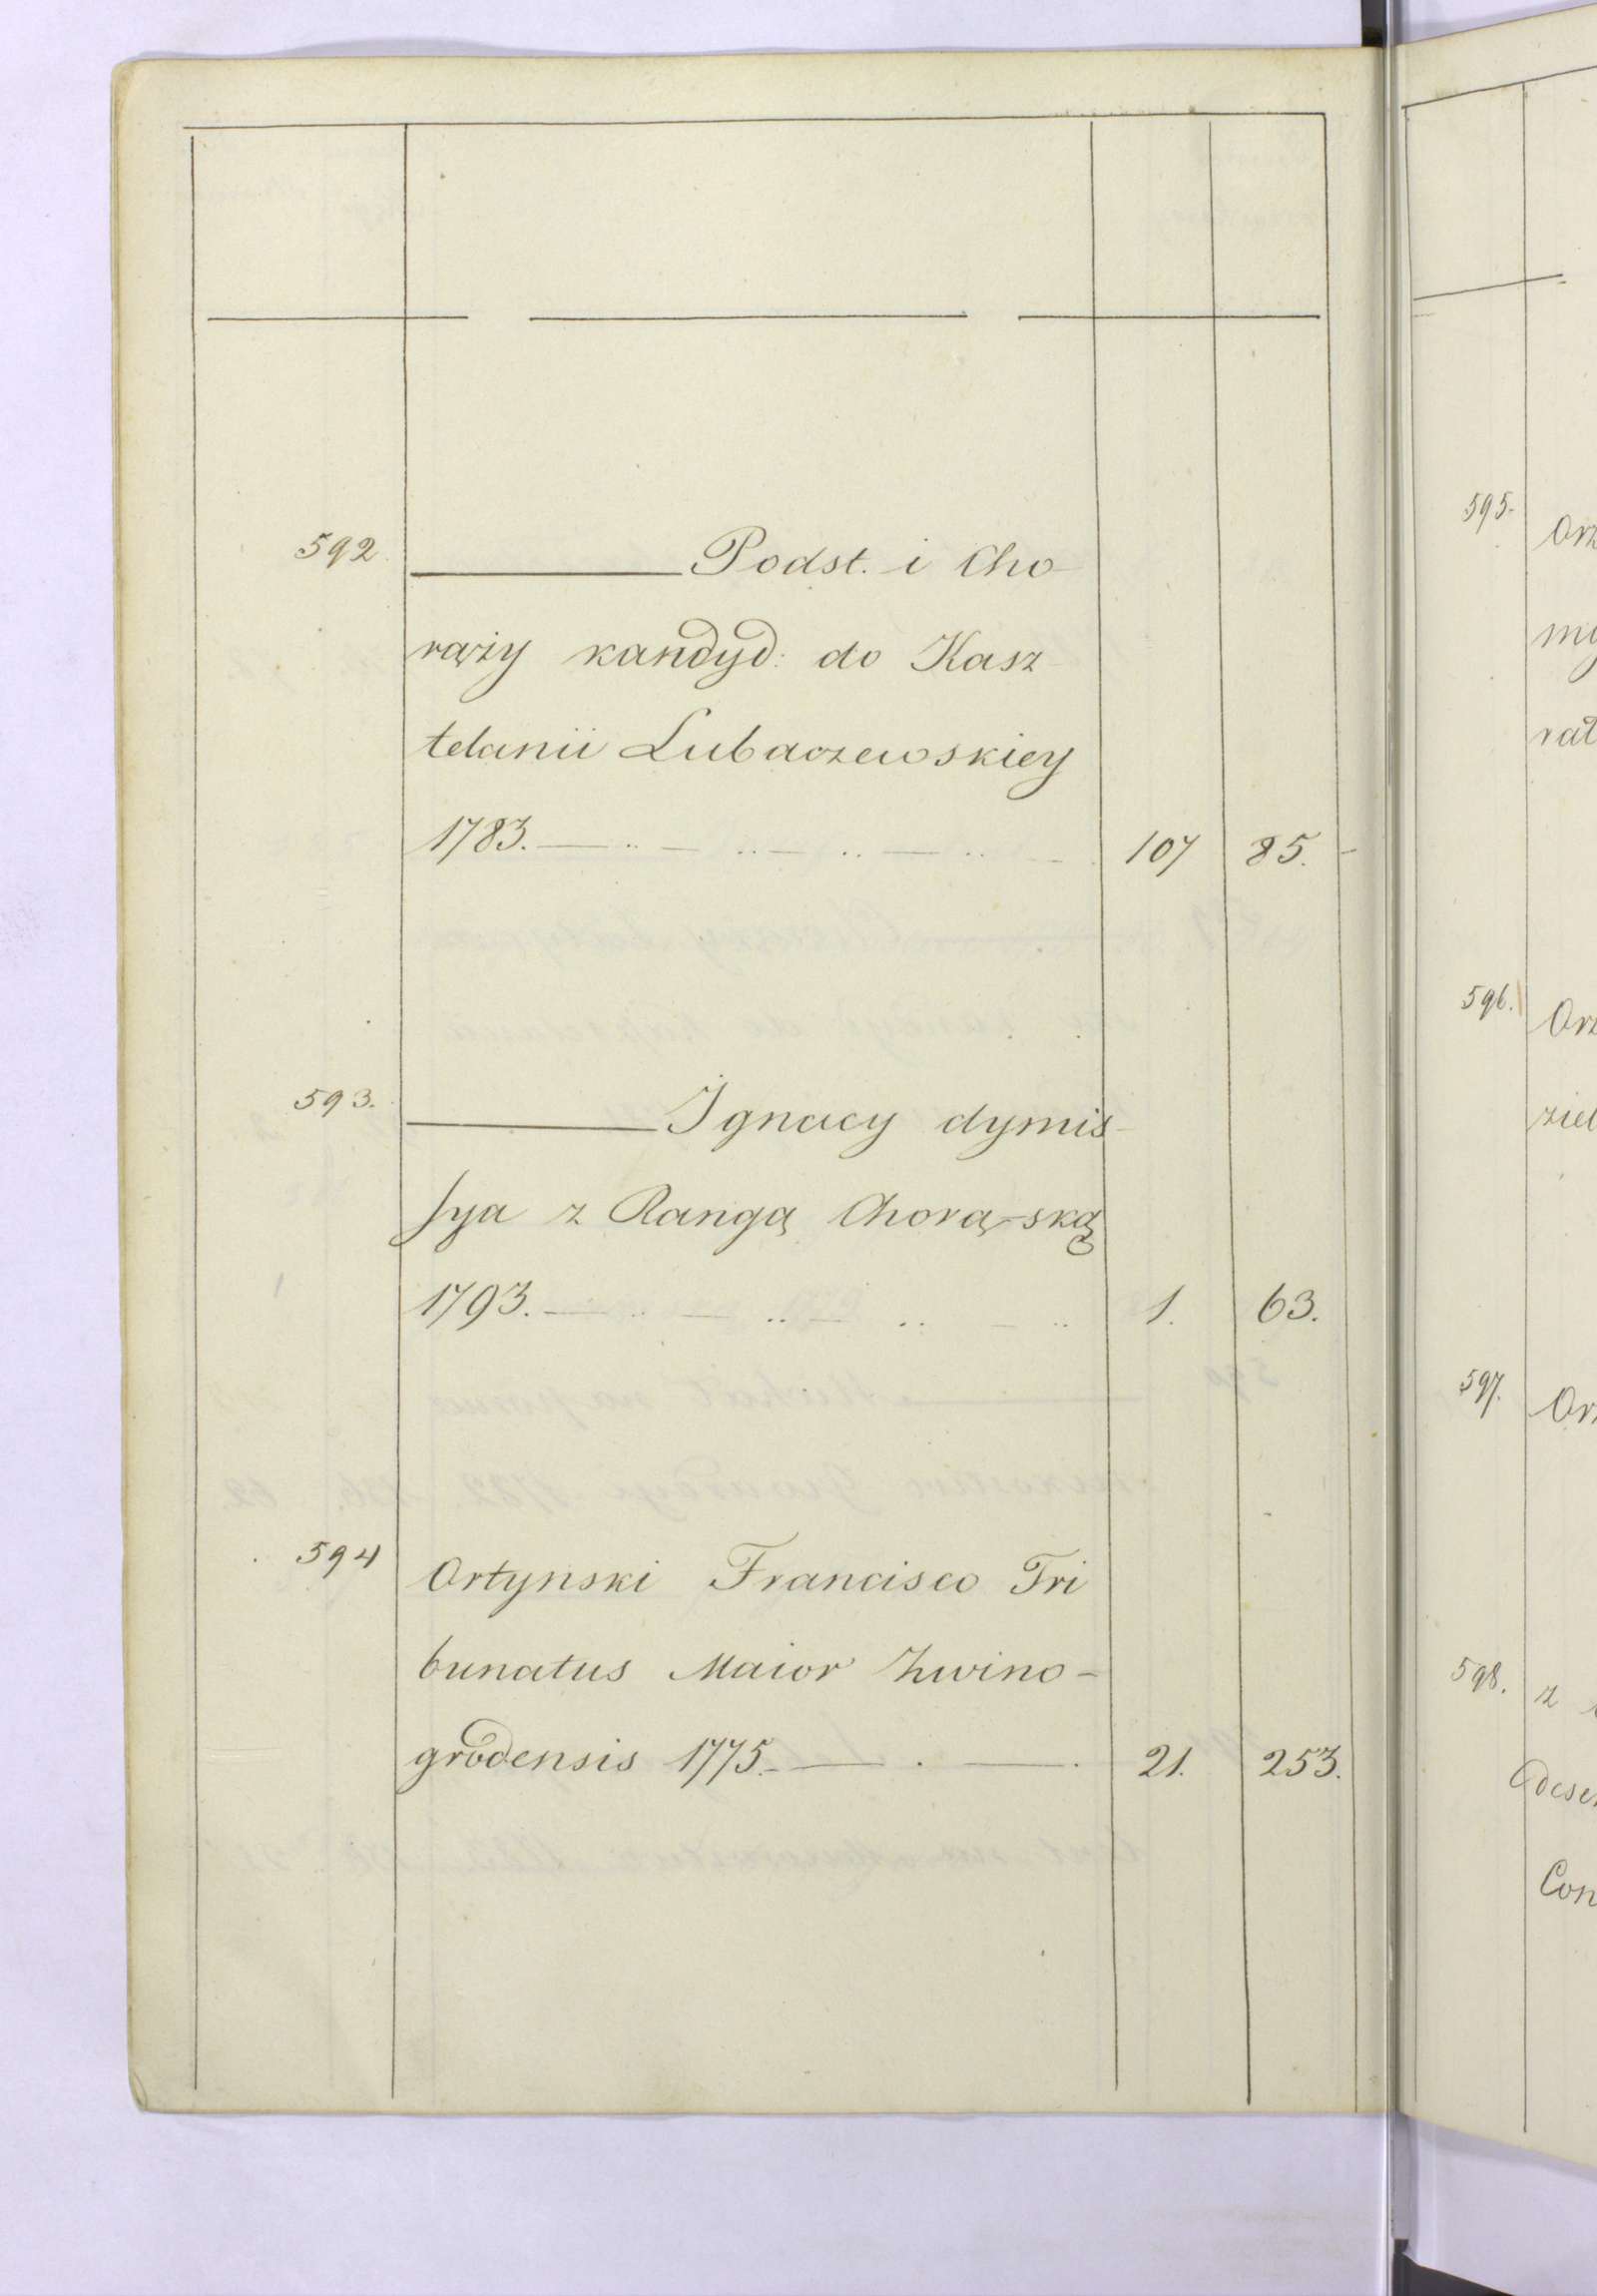 592. ——— Podst. i Cho-
rąży kandyd: do Kasz-
telanii Lubaczewskiey
1783. — .. — .. — .. — .. — 107 85.
593. ——— Ignacy dymis-
sya z Rangą Chorą-ską
1793. — .. — .. — .. — .. 1. 63.
594 Ortynski Francisco Tri
bunatus Maior Zwino-
grodensis 1775. — . — . 21. 253.
595.
596.
597.
598.